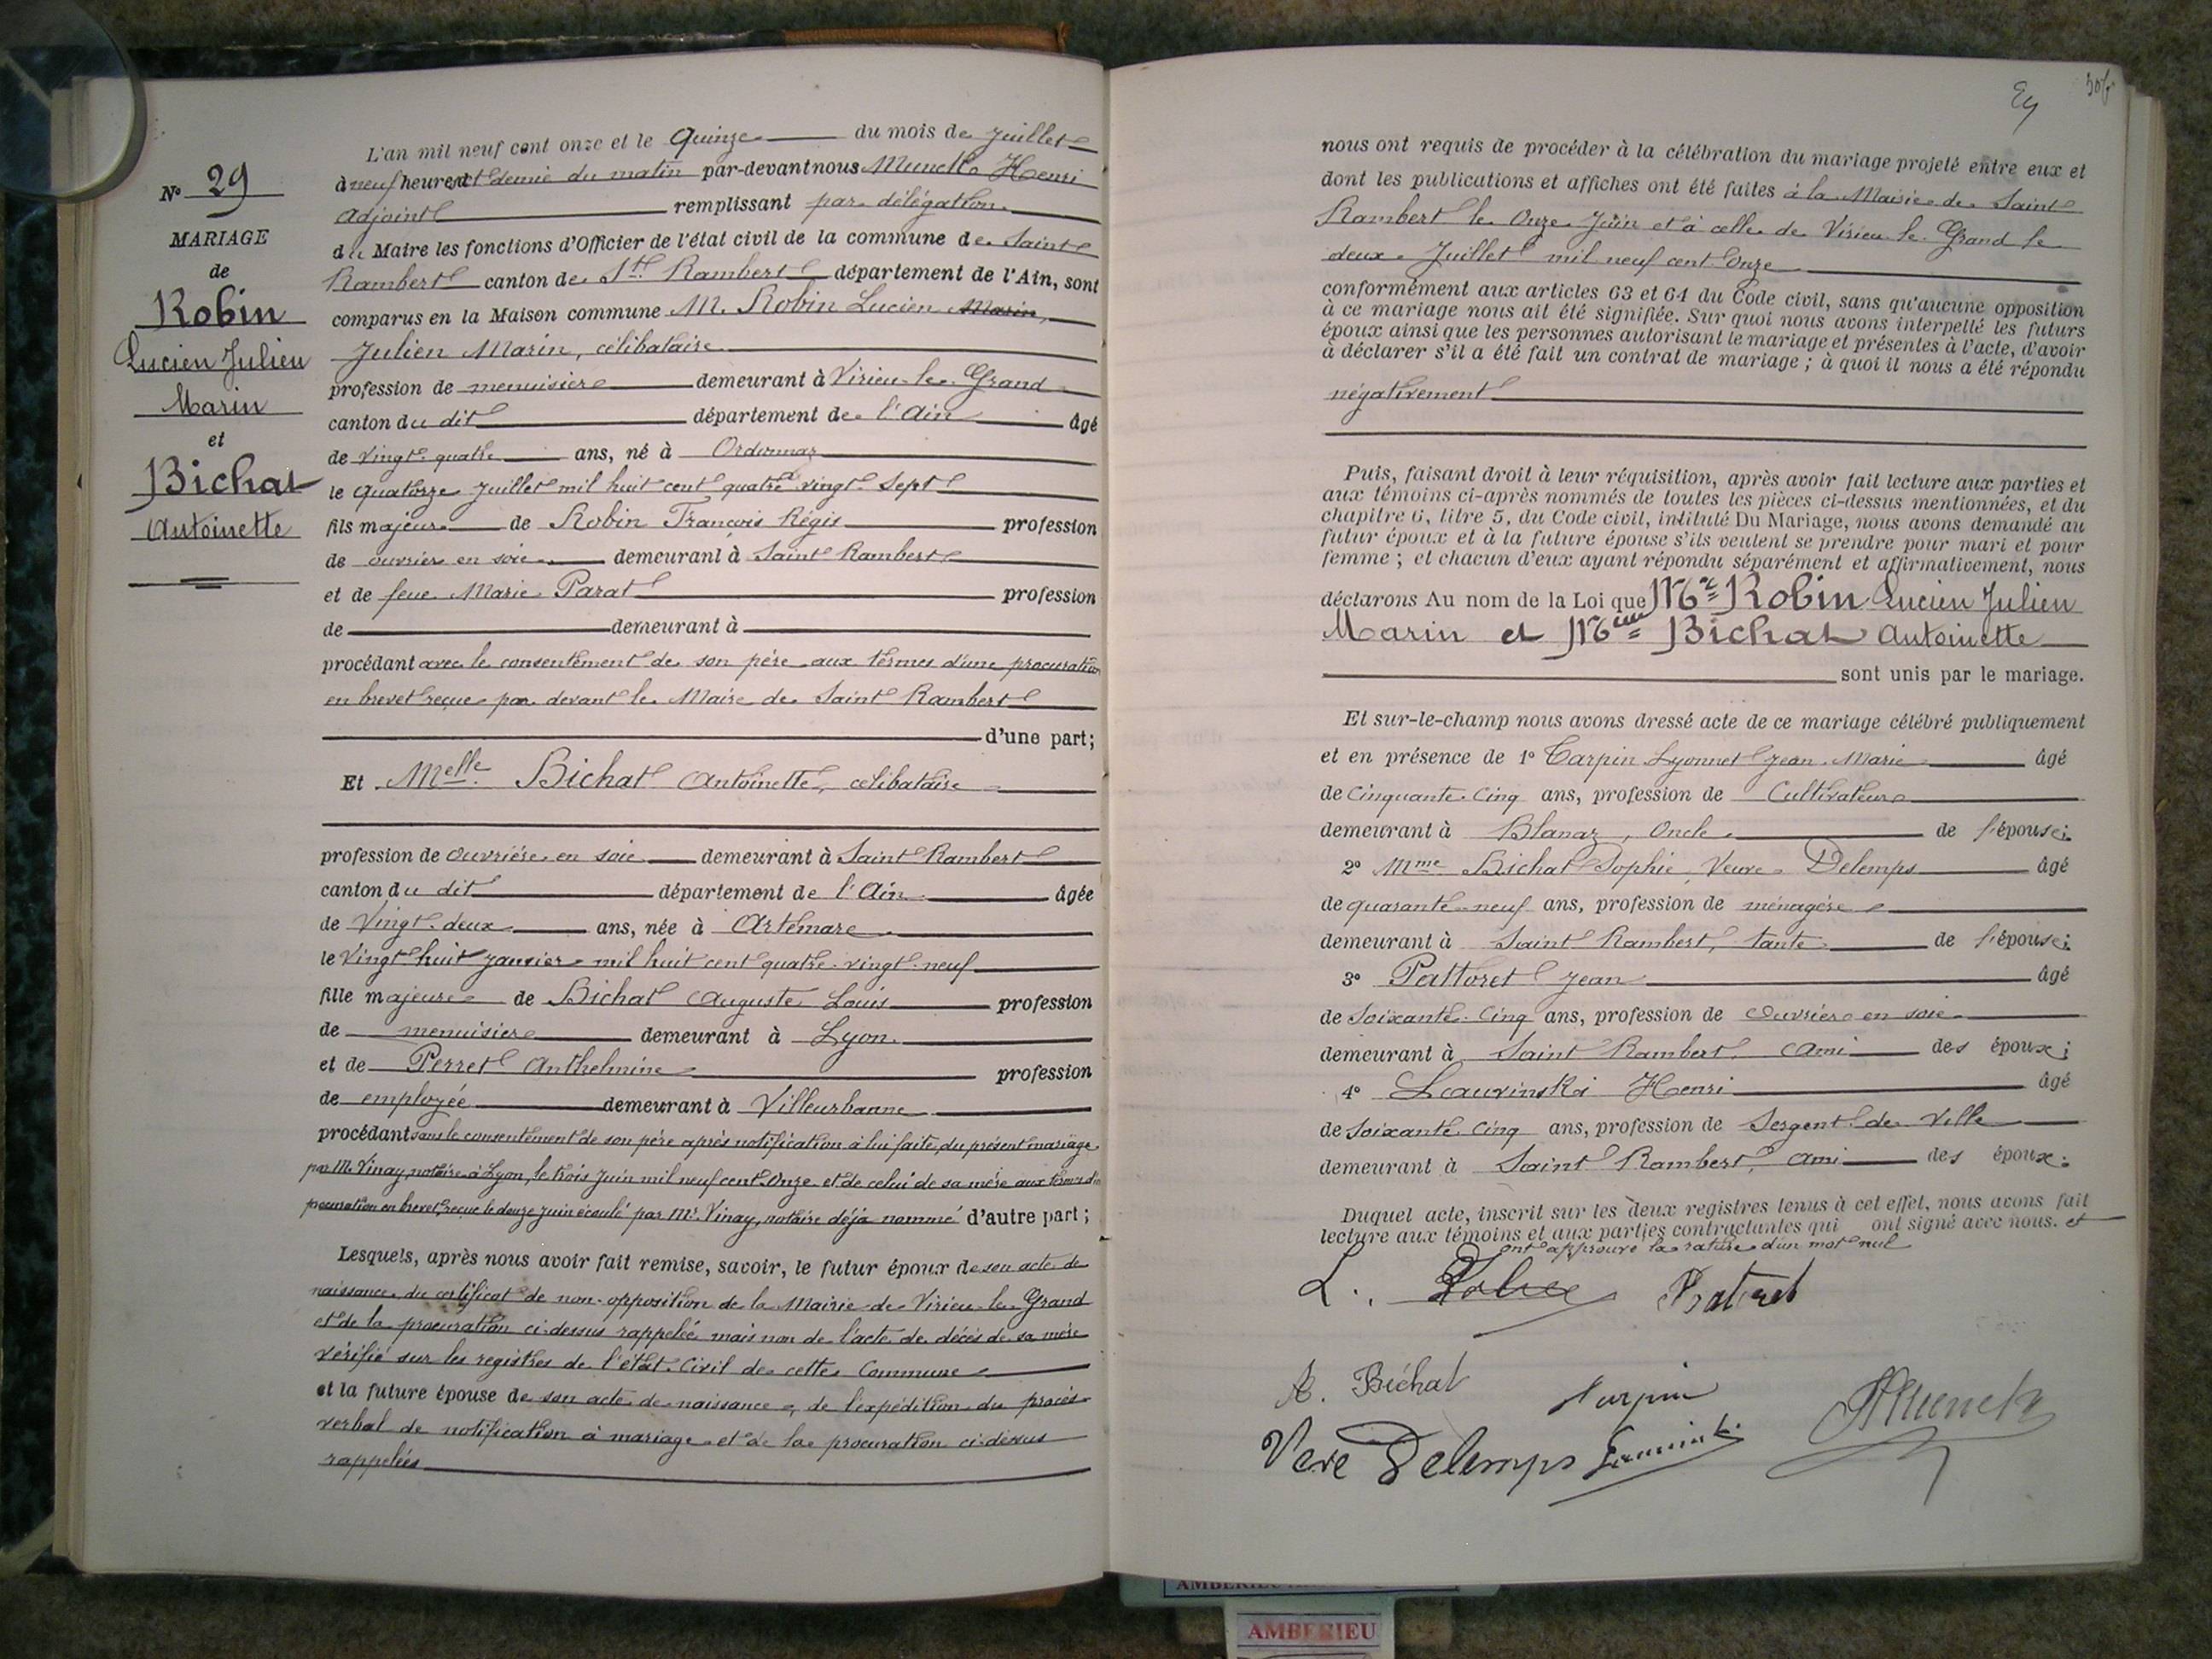 Nº 29
MARIAGE
de
Robin
Lucien Julien
Marin
et
Bichat
Antoinette
L'an mil neuf cent onze et le Quinze du mois de Juillet
à neuf heures et demie du matin par-devant nous Munck Henri
Adjoint remplissant par délégation
du Maire les fonctions d'Officier de l'état civil de la commune de Saint
Rambert canton de St Rambert département de l'Ain, sont
comparus en la Maison commune M. Robin Lucien Marin,
Julien Marin, célibataire
profession de menuisier demeurant à Virieu-le-Grand
canton du dit département de l'Ain âgé
de vingt-quatre ans, né à Ordonnaz
le Quatorze Juillet mil huit cent quatre vingt Sept
fils majeur de Robin François Régis profession
de ouvrier en soie demeurant à Saint Rambert
et de feue Marie Parat profession
de demeurant à
procédant avec le consentement de son père aux termes d'une procuration
en brevet reçue par devant le Maire de Saint Rambert
d'une part;
Et Melle Bichat Antoinette, célibataire
profession de ouvrière en soie demeurant à Saint Rambert
canton du dit département de l'Ain âgée
de Vingt-deux ans, née à Artemare
le Vingt huit Janvier mil huit cent quatre-vingt-neuf
fille majeure de Bichat Auguste Louis profession
de menuisier demeurant à Lyon
et de Perret Anthelmine profession
de employée demeurant à Villeurbanne
procédant sans le consentement de son père après notification à lui faite, du présent mariage
par M. Vinay, notaire à Lyon, le trois Juin mil neuf cent Onze et de celui de sa mère aux termes d'
procuration en brevet, reçue le douze juin écoulé par Mr. Vinay, notaire déjà nommé d'autre part;
Lesquels, après nous avoir fait remise, savoir, le futur époux de son acte de
naissance, du certificat de non-opposition de la Mairie de Virieu-le-Grand
et de la procuration ci-dessus rappelée mais non de l'acte de décès de sa mère
vérifié sur les registres de l'état-Civil de cette Commune
et la future épouse de son acte de naissance, de l'expédition du procès-
verbal de notification à mariage et de la procuration ci-dessus
rappelées
nous ont requis de procéder à la célébration du mariage projeté entre eux et
dont les publications et affiches ont été faites à la Mairie de Saint
Rambert le Onze Juin et à celle de Virieu-le-Grand le
deux Juillet mil neuf cent Onze
conformément aux articles 63 et 64 du Code civil, sans qu'aucune opposition
à ce mariage nous ait été signifiée. Sur quoi nous avons interpellé les futurs
époux ainsi que les personnes autorisant le mariage et présentes à l'acte, d'avoir
à déclarer s'il a été fait un contrat de mariage; à quoi il nous a été répondu
négativement
Puis, faisant droit à leur réquisition, après avoir fait lecture aux parties et
aux témoins ci-après nommés de toutes les pièces ci-dessus mentionnées, et du
chapitre 6, titre 5, du Code civil, intitulé Du Mariage, nous avons demandé au
futur époux et à la future épouse s'ils veulent se prendre pour mari et pour
femme; et chacun d'eux ayant répondu séparément et affirmativement, nous
déclarons Au nom de la Loi que Mr Robin Lucien Julien
Marin et Melle Bichat Antoinette
sont unis par le mariage.
Et sur-le-champ nous avons dressé acte de ce mariage célébré publiquement
et en présence de 1º Tarpin Lyonnet Jean Marie âgé
de Cinquante-Cinq ans, profession de Cultivateur
demeurant à Blanaz, Oncle de l'épouse;
2º Mme Bichat Sophie, Veuve Delemps âgé
de quarante-neuf ans, profession de ménagère
demeurant à Saint Rambert, tante de l'épouse;
3º Pattoret Jean âgé
de Soixante-Cinq ans, profession de Ouvrier en soie
demeurant à Saint Rambert, Ami des époux;
4º Henri âgé
de Soixante-Cinq ans, profession de Sergent de Ville
demeurant à Saint Rambert, ami des époux.
Duquel acte, inscrit sur les deux registres tenus à cet effet, nous avons fait
lecture aux témoins et aux parties contractantes qui ont signé avec nous. et
ont approuvé la rature d'un mot nul
L. Robin
A. Bichat Tarpin Munck
Veve Delemps
AMBERIEU